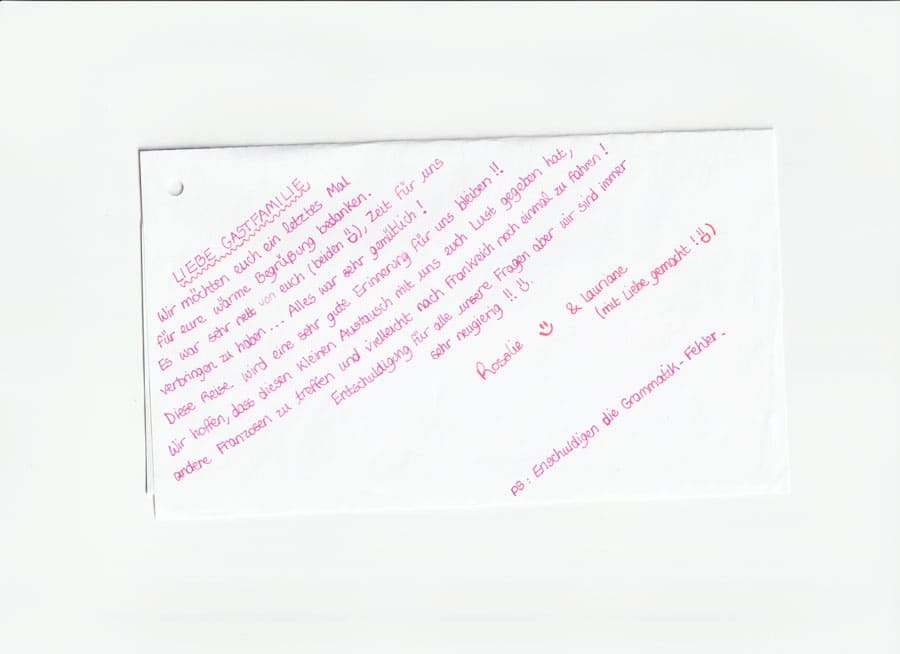 LIEBE GASTFAMILIE
Wir möchten euch ein letztes Mal
für eure wärme Begrüßung bedanken.
Es war sehr nett von euch (beiden ☺), Zeit für uns
verbringen zu haben... Alles war sehr gemütlich !
Diese Reise wird eine sehr gute Erinnerung für uns bleiben !!
Wir hoffen, dass diesen kleinen Austausch mit uns euch Lust gegeben hat,
andere Franzosen zu treffen und vielleicht nach Frankreich noch einmal zu fahren !
Entschuldigung für alle unsere Fragen aber wir sind immer
sehr neugierig !! ☺.
Rosalie ☺ & Lauriane
(mit Liebe gemacht !☺)
PS : Enschuldigen die Grammatik-Fehler.